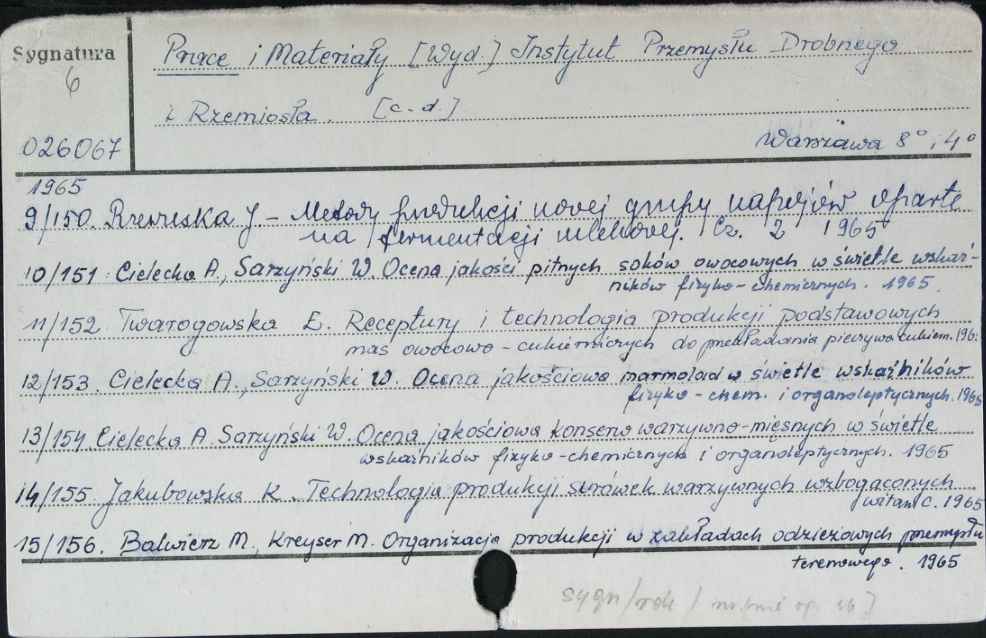 Sygnatura
6
026067
Prace i Materiały [Wyd.] Instytut Przemysłu Drobnego
i Rzemiosła. [c.d.]
Warszawa 8° i 4°
1965
9/150. Rzewuska J. - Metody produkcji nowej grupy napojów oparte
na fermentacji mlekowej. Cz. 2 1965
10/151 Cielecka A., Sarzyński W. Ocena jakości pitnych soków owocowych w świetle wskaź-
ników fizyko-chemicznych. 1965.
11/152 Twarogowska E. Receptury i technologia produkcji podstawowych
mas owocowo-cukierniczych do przekładania pieczywa cukiern. 196
12/153. Cielecka A., Sarzyński W. Ocena jakościowa marmolad w świetle wskaźników
fizyko-chem. i organoleptycznych. 1965
13/154. Cielecka A. Sarzyński W. Ocena jakościowa konserw warzywno-mięsnych w świetle
wskaźników fizyko-chemicznych i organoleptycznych. 1965
14/155 Jakubowska K. Technologia produkcji surówek warzywnych wzbogaconych
witam C. 1965
15/156. Balwierz M., Kreyser M. Organizacja produkcji w zakładach odzieżowych przemysłu
terenowego. 1965
sygn/rok /